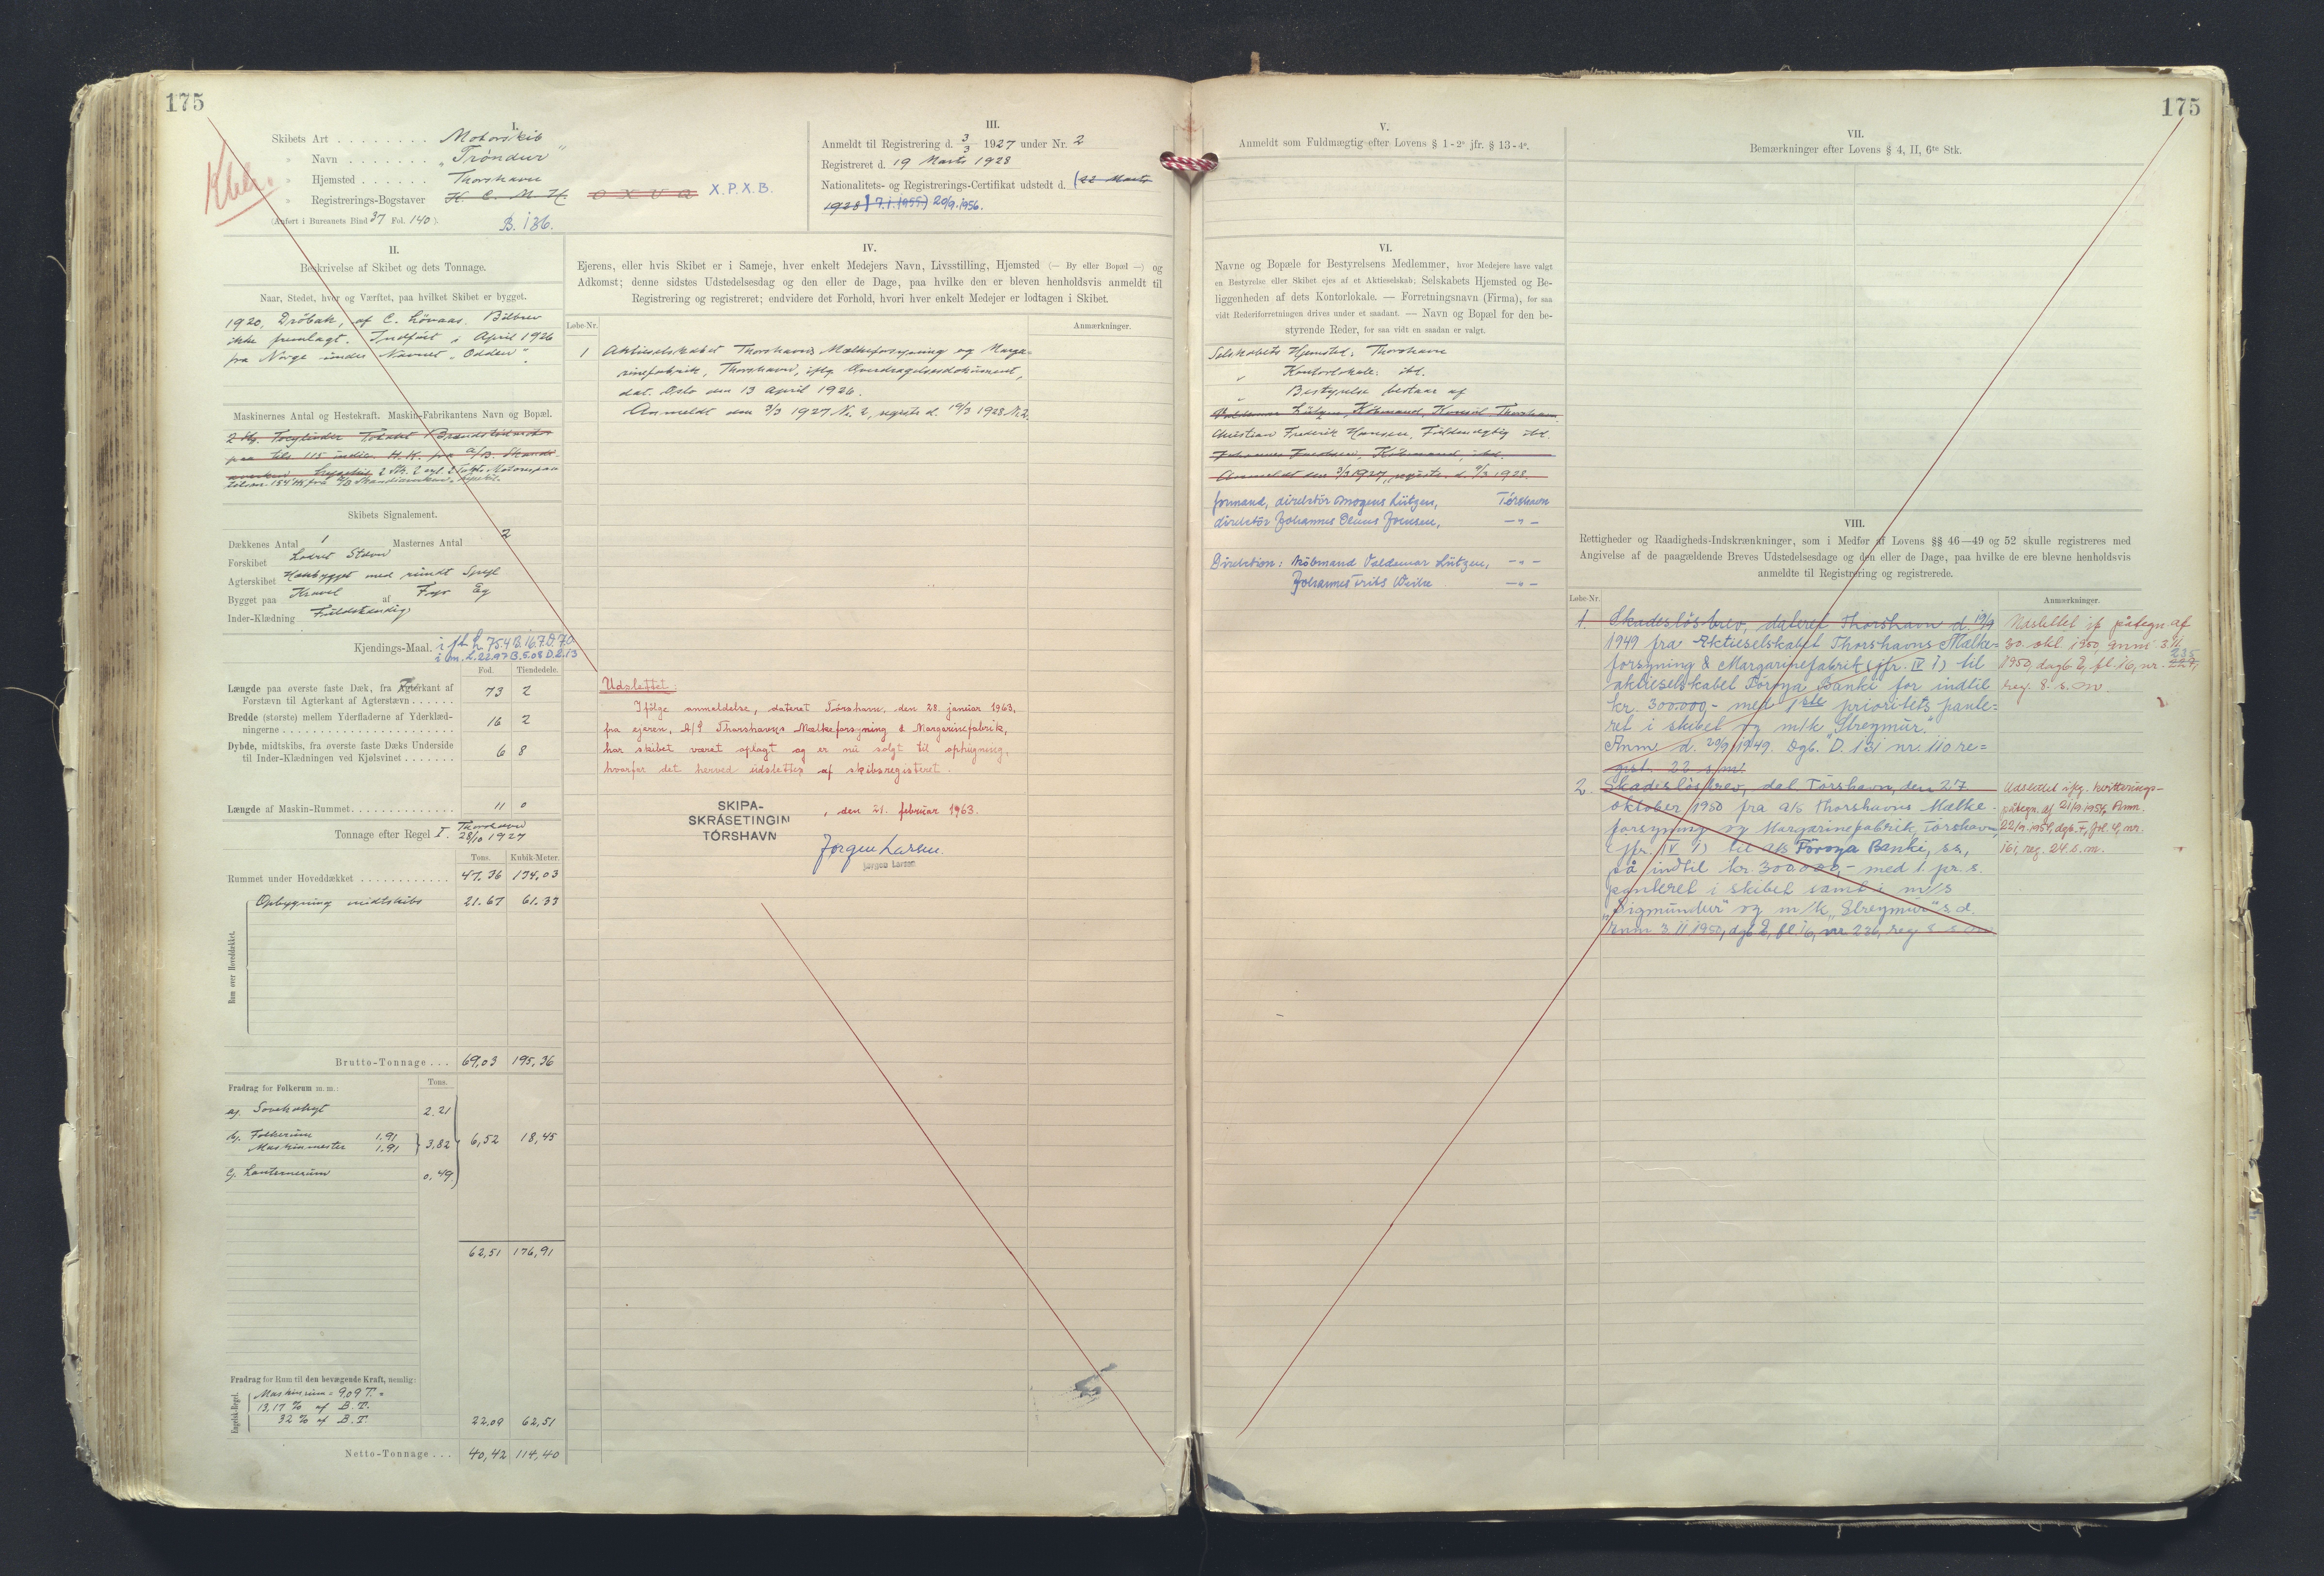 175
I.
Skibets Art . . . . . . . . Motorskib
" Navn . . . . . . . „Tróndur"
" Hjemsted . . . . . . Thorshavn
" Registrerings-Bogstaver N. C. M. H. O X V Q X.P.X.B.
(Anført i Bureauets Bind 37 Fol. 140). B. 136.
III.
Anmeldt til Registrering d. 3/3 1927 under Nr. 2
Registreret d. 19 Marts 1928
Nationalitets- og Registrerings-Certifikat udstedt d. (22 Marts
1928) 7.1.1955) 20/9.1956.
II.
Beskrivelse af Skibet og dets Tonnage.
Naar, Stedet, hvor og Værftet, paa hvilket Skibet er bygget.
1920, Dröbak, af C. Lövaas. Bilbrev
ikke fremlagt. Indført i April 1926
fra Norge under Navnet „Odden".
Maskinernes Antal og Hestekraft. Maskin-Fabrikantens Navn og Bopæl.
2 Stk. Tocylinder Totakt
paa tils 115 indic. H.K. fra A/B. Skandi-
2 Stk. 2 cyl. 2 Takts Motorer paa
Skibets Signalement.
Dækkenes Antal 1 Masternes Antal 2
Forskibet Lodret Stævn
Agterskibet Hækbygget med rundt Spejl
Bygget paa Kravel af Fyr Eg
Inder-Klædning Fuldstændig
Kjendings-Maal. i ft. L. 75.4 B. 16.7 D. 7.0
i m. L. 22.97 B. 5.08 D. 2.13
Fod. Tiendedele.
Længde paa øverste faste Dæk, fra Agterkant af
Forstævn til Agterkant af Agterstævn . . . . . . 73 2
Bredde (største) mellem Yderfladerne af Yderklæd-
ningerne . . . . . . . . . . 16 2
Dybde, midtskibs, fra øverste faste Dæks Underside
til Inder-Klædningen ved Kjølsvinet . . . . . . . 6 8
Længde af Maskin-Rummet . . . . . . . . . . 11 0
Tonnage efter Regel I. Thorshavn
28/10 1927
Tons. Kubik-Meter.
Rummet under Hoveddækket . . . . . . . . . . 47.36 134,03
Rum over Hoveddækket.
Opbygning midtskibs 21.67 61.33
Brutto-Tonnage . . . 69,03 195,36
Fradrag for Folkerum m. m.: Tons.
a). Sovekahyt 2.21
b). Folkerum 1.91
Maskinmester 1.91 3,82 6,52 18,45
c). Lanternerum 0,49
62,51 176,91
Fradrag for Rum til den bevægende Kraft, nemlig:
Engelsk-Regel.
Maskinrum = 9,09 T. =
13,17 % af B. T.
32 % af B. T. 22,09 62,51
Netto-Tonnage . . . 40,42 114,40
IV.
Ejerens, eller hvis Skibet er i Sameje, hver enkelt Medejers Navn, Livsstilling, Hjemsted (— By eller Bopæl —) og
Adkomst; denne sidstes Udstedelsesdag og den eller de Dage, paa hvilke den er bleven henholdsvis anmeldt til
Registrering og registreret; endvidere det Forhold, hvori hver enkelt Medejer er lodtagen i Skibet.
Løbe-Nr. Anmærkninger.
1 Aktieselskabet Thorshavns Mælkeforsyning og Marga-
rinefabrik, Thorshavn, iflg. Overdragelsesdokument,
dat. Oslo den 13 April 1926.
Anmeldt den 3/3 1927 N. 2, registr. d. 19/3 1928 N. 2.
Udslettet:
Ifölge anmeldelse, dateret Tórshavn, den 28. januar 1963,
fra ejeren, A/S Thorshavns Mælkeforsyning & Margarinefabrik,
har skibet været oplagt og er nu solgt til ophugning,
hvorfor det herved udslettes af skibsregisteret.
SKIPA-
SKRÁSETINGIN
TÓRSHAVN
, den 21. februar 1963.
Jørgen Larsen.
Jørgen Larsen
175
V.
Anmeldt som Fuldmægtig efter Lovens § 1 - 2° jfr. § 13 - 4°.
VI.
Navne og Bopæle for Bestyrelsens Medlemmer, hvor Medejere have valgt
en Bestyrelse eller Skibet ejes af et Aktieselskab; Selskabets Hjemsted og Be-
liggenheden af dets Kontorlokale. — Forretningsnavn (Firma), for saa
vidt Rederiforretningen drives under et saadant. — Navn og Bopæl for den be-
styrende Reder, for saa vidt en saadan er valgt.
Selskabets Hjemsted: Thorshavn
" Kontorlokale: ibd.
" Bestyrelse bestaar af
Valdemar Lützen, Købmand, Konsul Thorshavn
Christian Frederik Hansen, Fuldmægtig ibd.
Købmand, ibd.
Anmeldt den 3/3 1927, registr. d. 19/3 1928.
formand, direktör Mogens Lützen, Tórshavn
direktör Johannes Olaus Joensen, — " —
Direktion: Köbmand Valdemar Lützen, — " —
Johannes Frits Weihe — " —
VII.
Bemærkninger efter Lovens § 4, II, 6te Stk.
VIII.
Rettigheder og Raadigheds-Indskrænkninger, som i Medfør af Lovens §§ 46—49 og 52 skulle registreres med
Angivelse af de paagældende Breves Udstedelsesdage og den eller de Dage, paa hvilke de ere blevne henholdsvis
anmeldte til Registrering og registrerede.
Løbe-Nr. Anmærkninger.
1. Skadeslösbrev, dateret Thorshavn d. 19/9
1949 fra Aktieselskabet Thorshavns Mælke=
forsyning & Margarinefabrik (jfr. IV 1) til
aktieselskabet Föroya Banki for indtil
kr. 300.000,- med 1ste prioritets pante=
ret i skibet og m/k „Streymúr."
Anm. d. 29/9 1949. Dgb. D. 131 nr. 110 re=
gist. 22 s/m.
Udslettet if. påtegn. af
30. okt. 1950, anm. 3.11.
1950, dagb. E, fl. 16, nr. 235
reg. 8. s. m.
2. Skadeslösbrev, dat. Tórshavn, den 27.
oktober 1950 fra a/s Thorshavns Mælke-
forsyning og Margarinefabrik, Tórshavn,
(jfr. IV 1) til a/s Föroya Banki, ss.,
på indtil kr. 300.000,- med 1. pr. s.
panteret i skibet samt i m/s
„Sigmundur" og m/k „Streymúr" s.d.
Anm 3.11 1950, dgb E, fl. 16, nr 236, reg 8 s.m.
Udslettet iflg. kvitterings-
påtegn. af 21/9 1954, Anm.
22/9 1954, dgb. F, fol. 4, nr.
161, reg. 24. s. m.